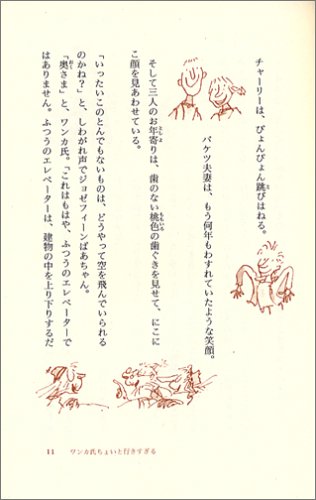 チャーリーは、ぴょんぴょん跳びはねる。
バケツ夫妻は、もう何年もわすれていたような笑顔。
そして三人のお年寄りは、歯のない桃色の歯ぐきを見せて、にこに
こ顔を見あわせている。
「いったいこのとんでもないものは、どうやって空を飛んでいられる
のかね？」と、しわがれ声でジョゼフィーンばあちゃん。
「奥さま」と、ワンカ氏。「これはもはや、ふつうのエレベーターで
はありません。ふつうのエレベーターは、建物の中を上り下りするだ
11 ワンカ氏ちょいと行きすぎる